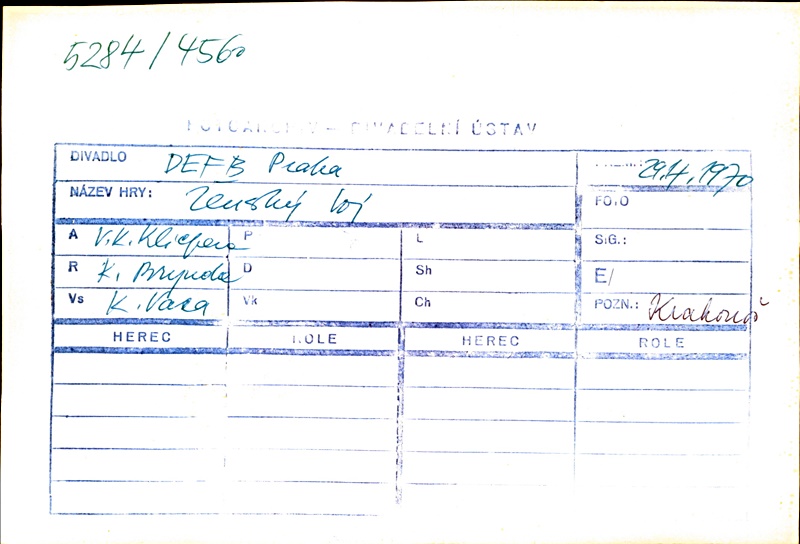 5284/4560
FOTOARCHIV – DIVADELNÍ ÚSTAV
DIVADLO DEFB Praha PREM.: 29.4.1970
NÁZEV HRY: Ženský boj FOTO
A V.K.Klicpera P L SIG.:
R K. Brynda D Sh E/
Vs K. Vaca Vk Ch POZN.: Krakonoš
HEREC ROLE HEREC ROLE